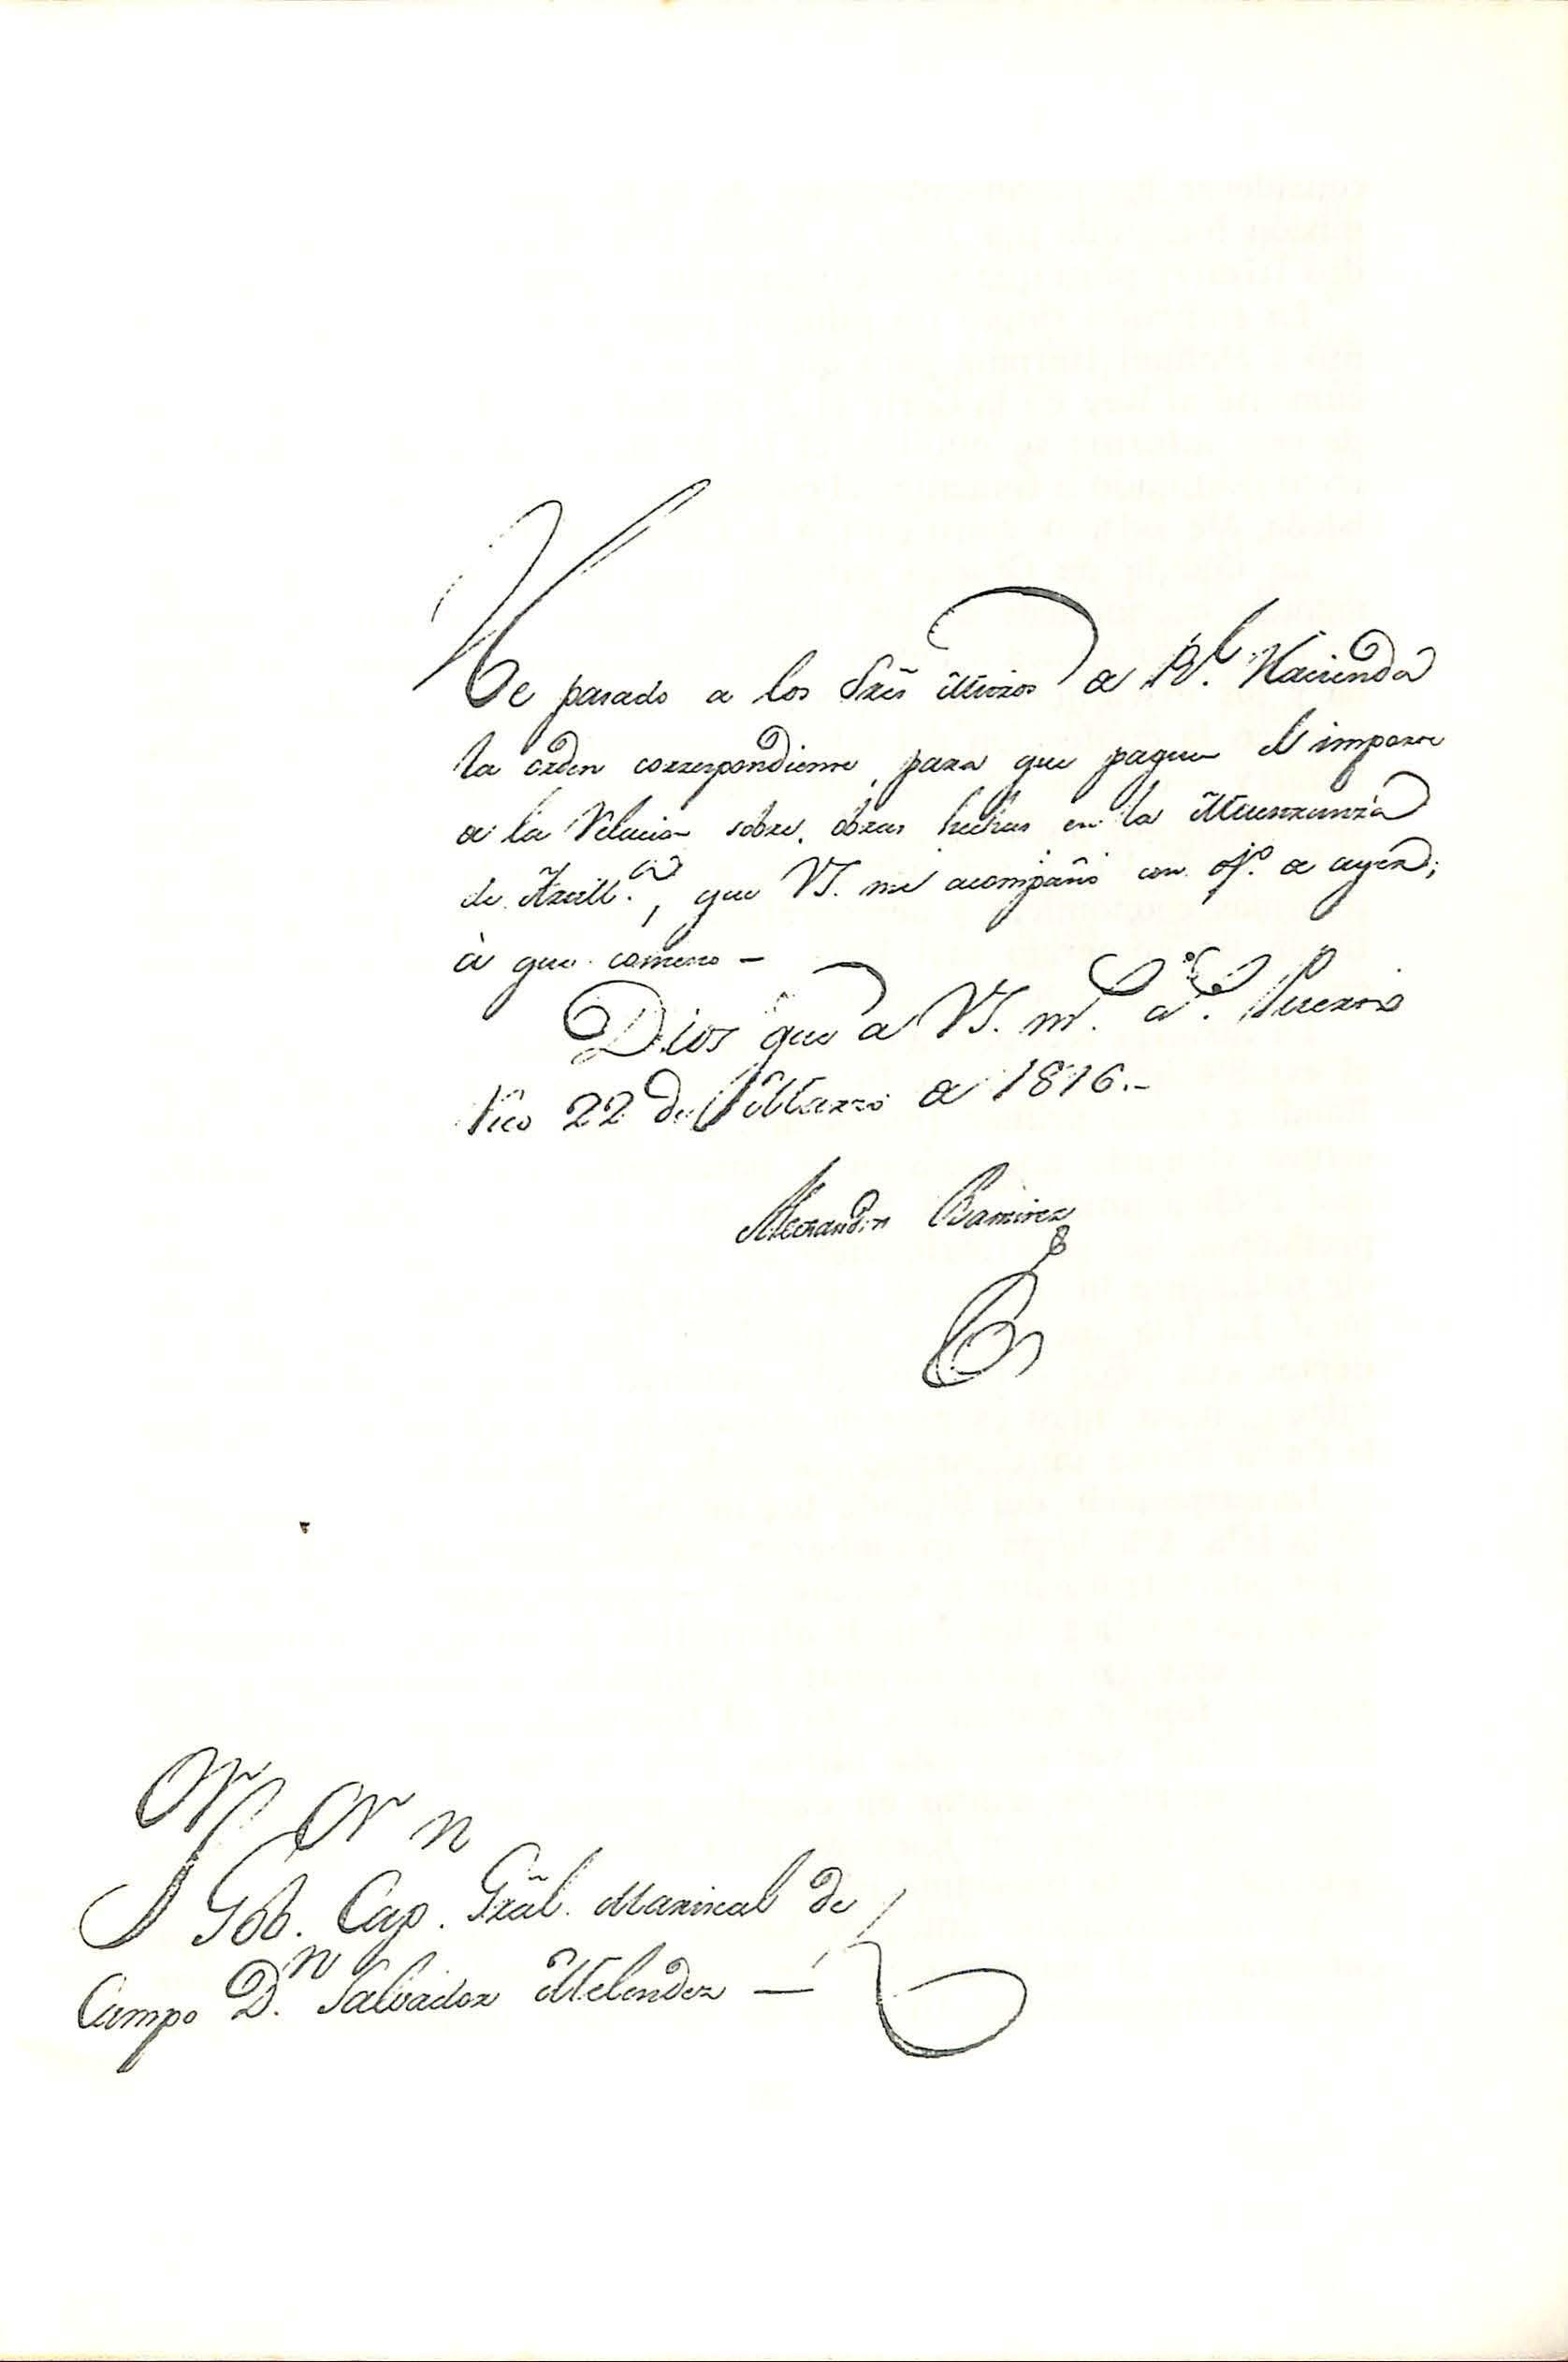 He pasado a los Sres Mrõs de Rl. Hacienda
la orden correspondiente para que paguen el importe
de la Relacion sobre obras hechas en la Maestranza
de Artill.a, que VS. me acompaño con of.o de ayer;
à que contexto –
Dios gue a VS. m.s a.s Puerto
Rico 22 de Marzo de 1816.–
Alexandro Ramirez
Sor Gor n
Gob. Cap. Grãl. Mariscal de
Campo D.n Salvador Melendez –